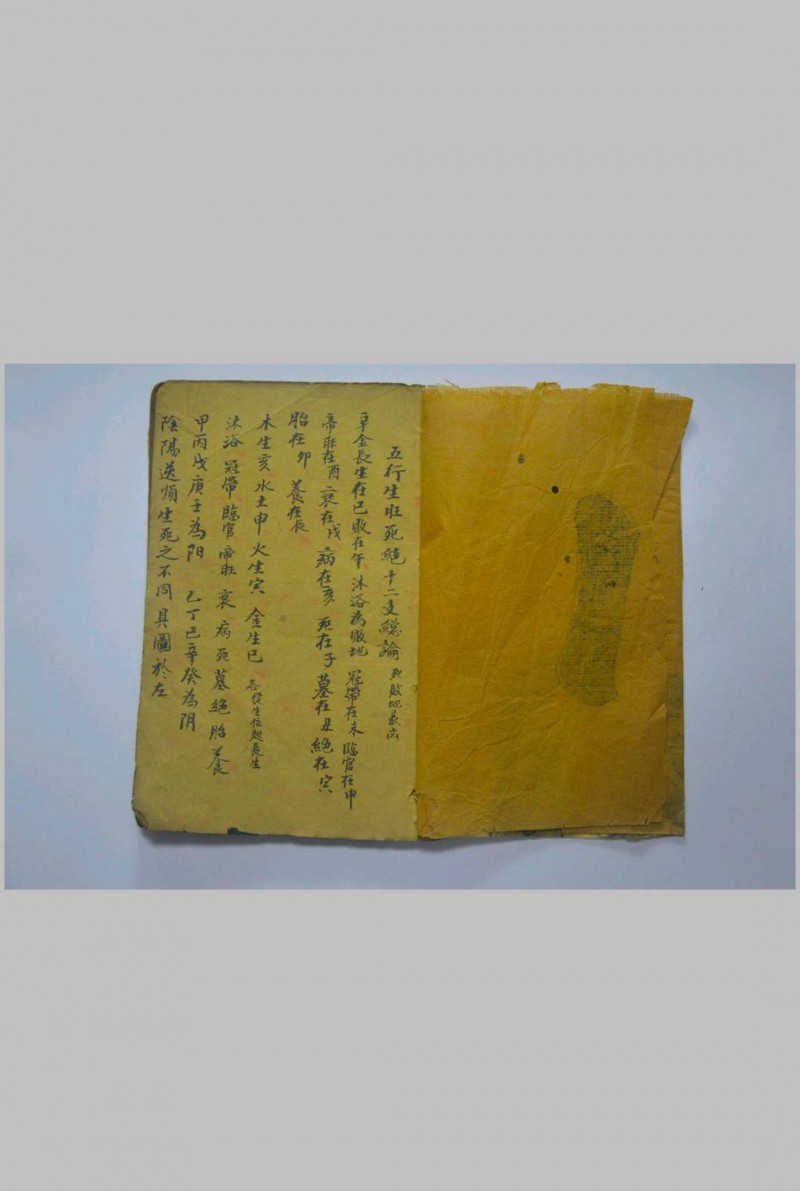 五行生旺死絕十二支緫論 死敗地最凶
辛金長生在巳敗在午 沐浴為敗地 冠帶在未 臨官在申
帝旺在酉 衰在戌 病在亥 死在子 墓在丑 絕在寅
胎在卯 養在辰
木生亥 水土申 火生寅 金生巳 各從生位起長生
沐浴 冠帶 臨官 帝旺 衰 病 死 墓 絕 胎 養
甲丙戊庚壬為阳 乙丁己辛癸為阴
陰陽送順生死之不同 具圖於左